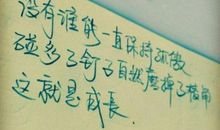 没有谁能一直保持孤傲
碰多了钉子自然磨掉了棱角
这就是成长.